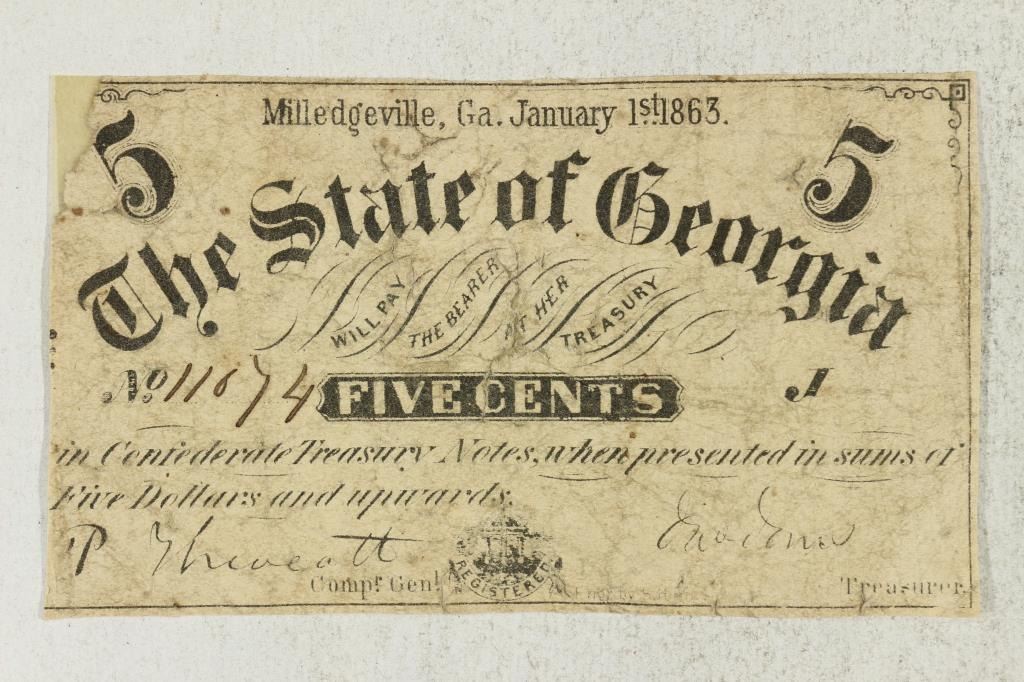 Milledgeville, Ga. January 1st 1863.
5 5
The State of Georgia
WILL PAY THE BEARER AT HER TREASURY
No. 11674 FIVE CENTS J
in Confederate Treasury Notes, when presented in sums of
Five Dollars and upwards.
P Thweatt
Compr. Genl.
REGISTERED
Jno Jones
Treasurer.